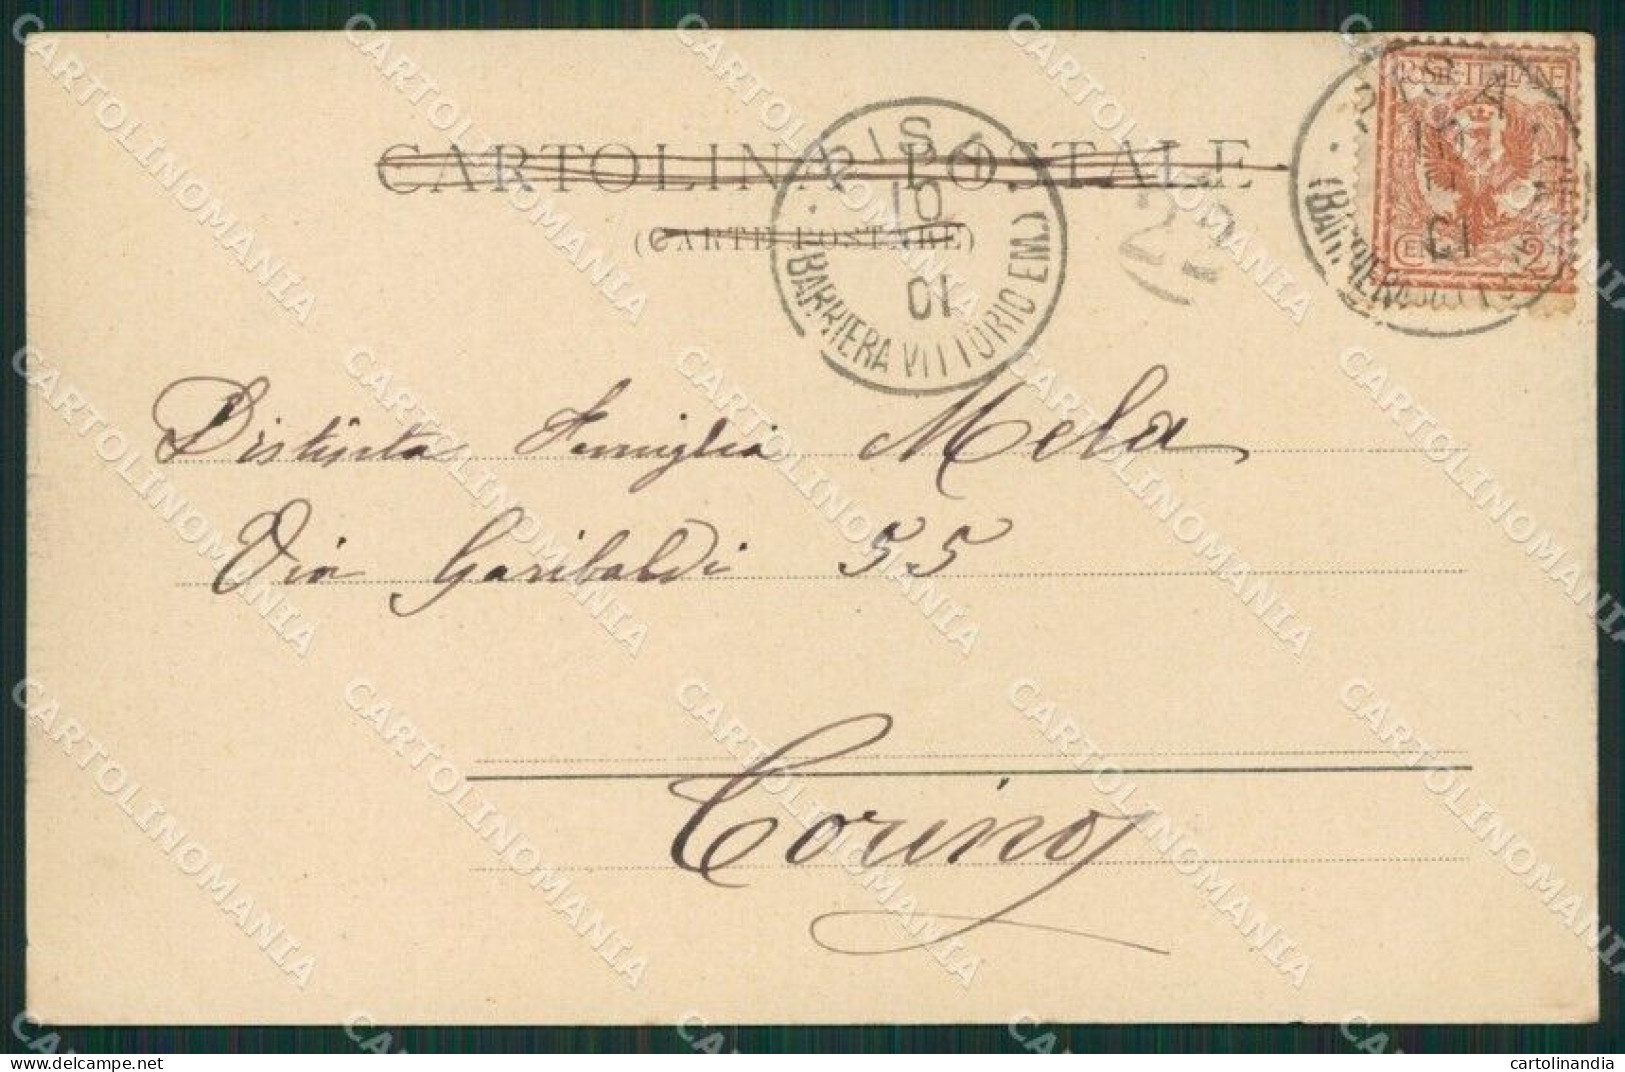 CARTOLINA POSTALE
(CARTE POSTALE)
PISA
10
01
(BARRIERA VITTORIO EM.)
POSTE ITALIANE
PISA
10
01
2
Distinta Famiglia Mela
Via Garibaldi 55
Torino
CARTOLINOMANIA
cartolinandia